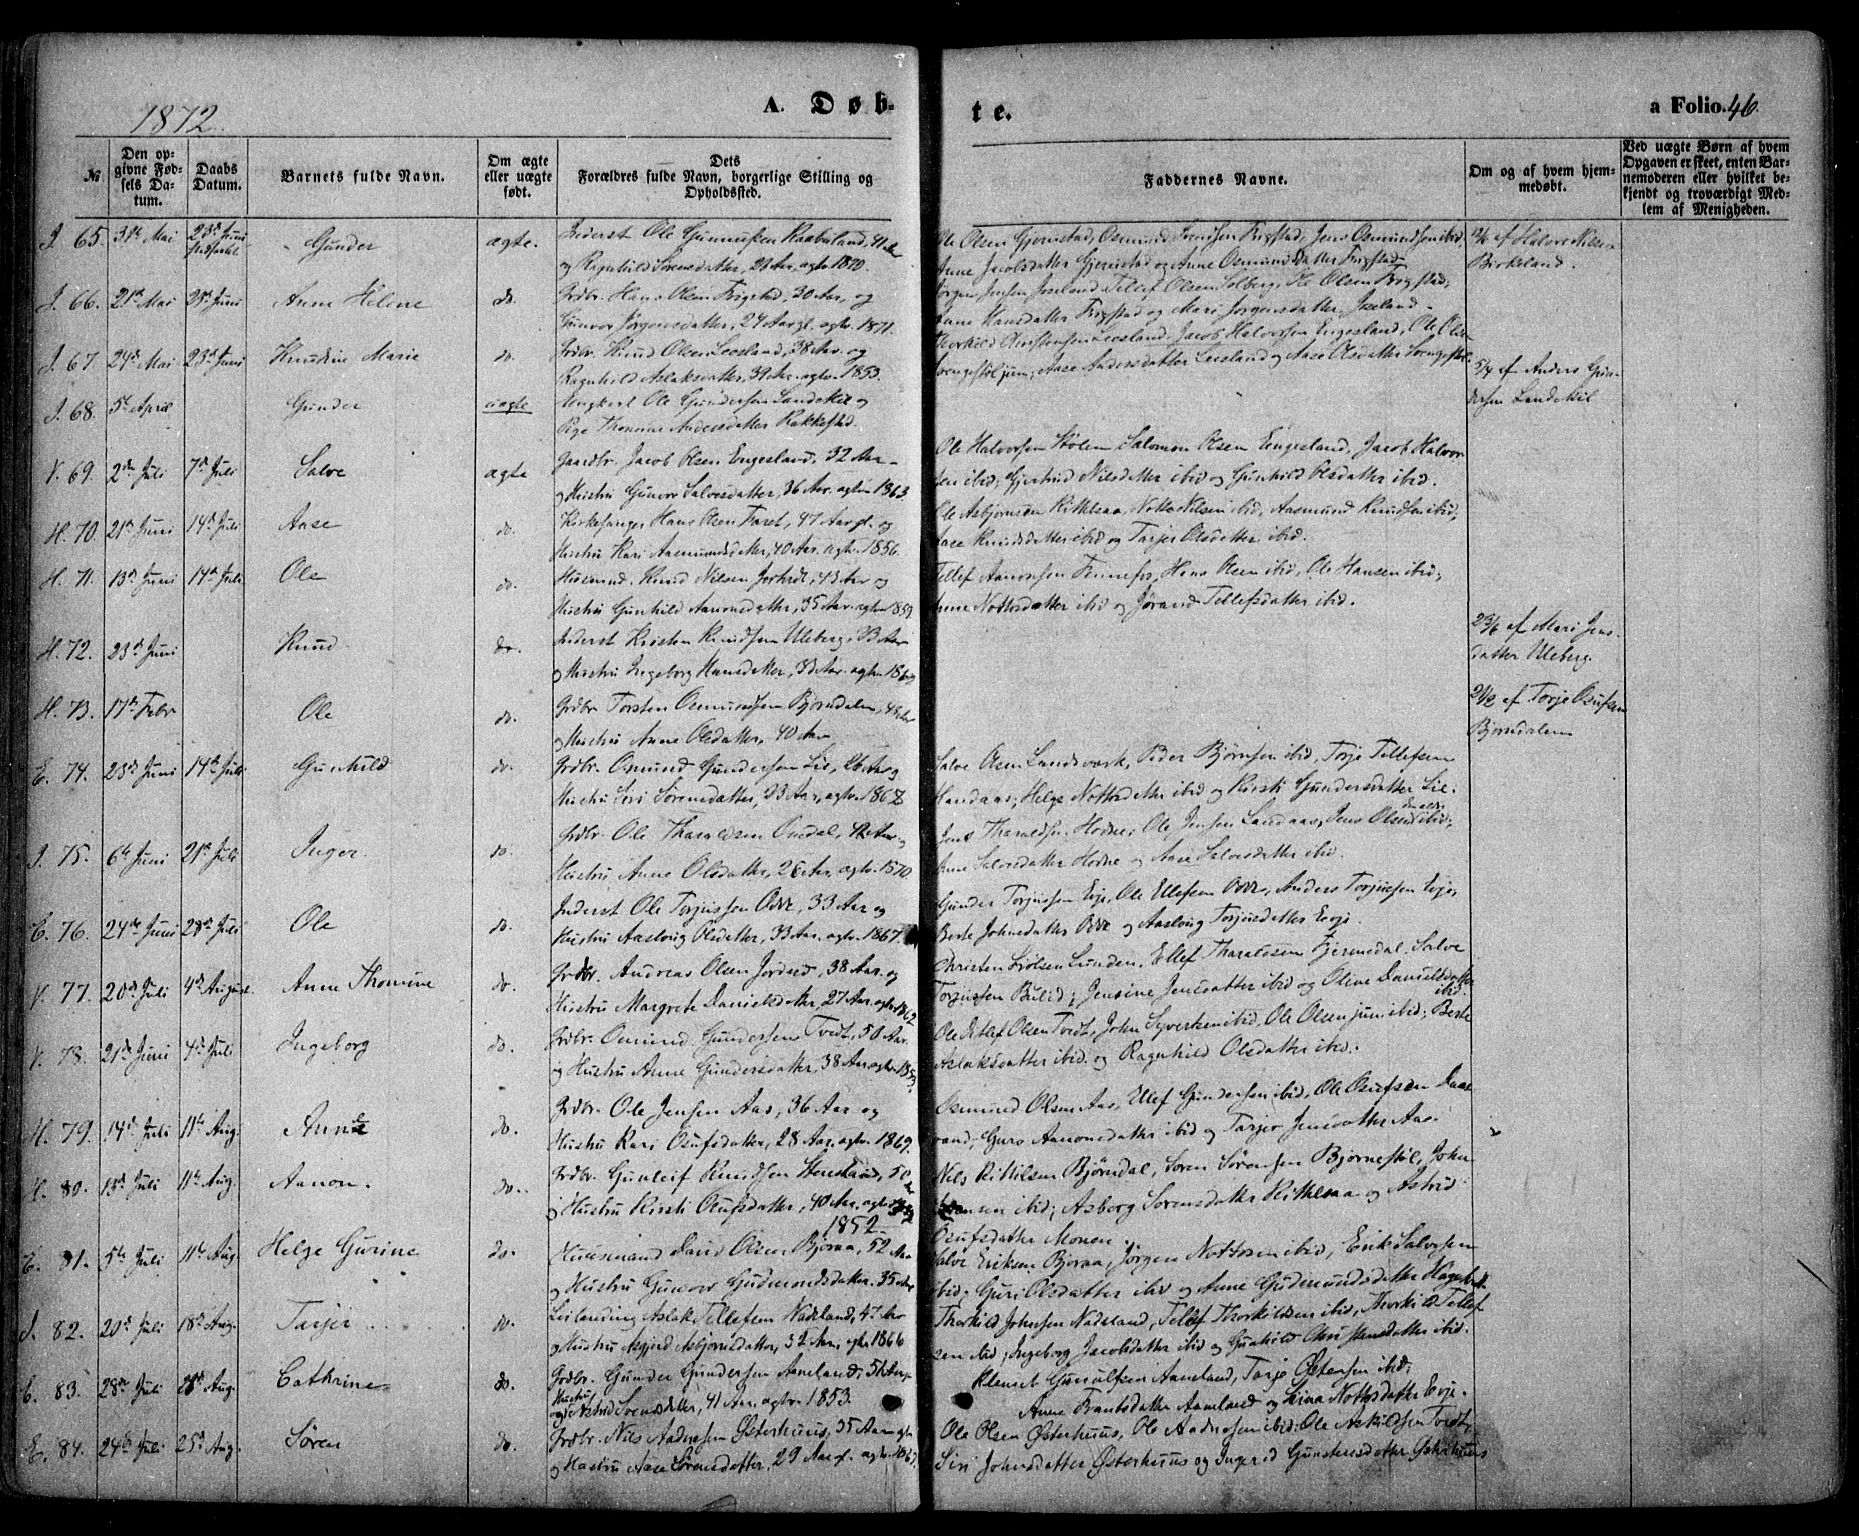 1872.
A. Døb-
te.
a Folio. 46.
№
Den op-
givne Fød-
sels Da-
tum.
Daabs
Datum.
Barnets fulde Navn.
Om ægte
eller uægte
født.
Dets
Forældres fulde Navn, borgerlige Stilling og
Opholdssted.
Faddernes Navne.
Om og af hvem hjem-
medøbt.
Ved uægte Børn af hvem
Opgaven er skeet, enten Bar-
nemoderen eller hvilket be-
kjendt og troværdigt Med-
lem af Menigheden.
J. 65. 31te Mai 23de Juni Gunder ægte. Inderst Ole Gunnufsen Raabuland, 41 Aar
og Ragnhild Sørensdatter, 21 Aar, agtv. 1870.
Ole Olsen Gjerustad, Osmund Frigstad, Jens Osmundsen ibid
Anne Jacobsdatter Gjerustad og Anne Osmundsdatter Frigstad
af Halvor Nilsen
Birkeland.
J. 66. 21de Mai Juni Anne Helene do. Grdbr. Hans Olsen Frigstad, 30 Aar, og
Gunvor Jørgensdatter, 24 Aar gl. agtv. 1871.
Jørgen Jensen Tellef Olsen Solberg, Ole Olsen Frigstad,
Anne Hansdatter Frigstad og Mari Jørgensdatter
J. 67. 24de Mai 23de Juni Knudine Marie do. Grdbr. Knud Olsen Leesland, 38 Aar og
Ragnhild Aslaksdatter, 39 Aar. agtv. 1853.
Thorkild Christensen Leesland, Jacob Halvorsen Engesland, Ole Olsen
jun; Aase Andersdatter Leesland og Aase Olsdatter
J. 68. 5te April Gunder uægte Ungkarl Ole Gundersen Landskil og
Pige Thomine Andersdatter Rakkestad.
5/4 af Anders Gun-
dersen Landskil
V. 69. 2den Juli 7de Juli Salve ægte Gaardbr. Jacob Olsen Engesland, 32 Aar
og Hustru Gunvor Salvesdatter, 36 Aar. agtv. 1863.
Ole Halvorsen Stølen Salomon Olsen Engesland, Jacob Halvor-
sen ibid; Gjertrud Nilsdatter ibid og Gunhild Olsdatter ibid.
H. 70. 21de Juni 14de Juli Aase do. Kirkesanger Hans Olsen Faret, 47 Aar gl. og
Hustru Kari Aasmundsdatter, 40 Aar. agtv. 1856.
Ole Asbjørnsen Kittelsaa, Notto Nilsen ibid, Aasmund Knudsen ibid,
Aase Knudsdatter ibid og Tarjer Olsdatter ibid.
H. 71. 13de Juni 14de Juli Ole do. Huusmd. Knud Nilsen 43 Aar og
Hustru Gunhild Aanonsdatter, 35 Aar. agtv. 1859.
Tellef Aanonsen Fennefos, Hans Olsen ibid, Ole Hansen ibid,
Anne Nottosdatter ibid og Jørand Tellefsdatter ibid.
H. 72. 23de Juni Knud do. Inderst Kristen Knudsen Uleberg, 33 Aar
og Hustru Ingeborg Hansdatter, 33 Aar. agtv.
23/6 af Mari Jens-
datter Uleberg.
H. 73. 17de Febr Ole do. Grdbr. Torsten Osmundsen Bjorndalen, 48 Aar
og Hustru Anne Olsdatter, 40 Aar
af Torje Osufsen
Bjorndalen
E. 74. 23de Juni 14de Juli Gunhild do. Grdbr. Osmund Gundersen Lie, 26 Aar og
Hustru Siri Sørensdatter, 23 Aar, agtv.
Salve Olsen Landsværk, Peder Bjørnsen ibid, Torje Tellefsen
Haandaas; Helge Nottosdatter ibid og Kirsti Gundersdatter Lie.
J. 75. 6te Juni 21de Juli Inger. do. Grdbr. Ole Tharaldsen Omdal, 42 Aar og
Hustru Anne Olsdatter, 26 Aar, agtv. 1870.
Jens Tharaldsen Hodne; Ole Jensen Landaas, Jens Olsen ibid;
Anne Salvesdatter Hodne og Aase Salvesdatter ibid.
E. 76. 24de Juni 28de Juli Ole do. Inderst Ole Torjussen Odde, 33 Aar og
Hustru Aaslaug Olsdatter, 33 Aar. agtv. 1867.
Gunder Torjussen Evje, Ole Ellefsen Odde, Anders Torjussen Evje,
Berte Johnsdatter Odde og Aaslaug Torjusdatter Evje.
V. 77. 20de Juli 4de August. Anne Thomine do. Grdbr. Andreas Olsen 38 Aar. og
Hustru Margrete Danielsdatter, 27 Aar. agtv. 1862
Christen Lunden, Ellef Tharaldsen Fjermedal, Salve
Torjussen Bulid; Jensine Jensdatter ibid og Oline Danielsdatter
ibid.
V. 78. 21de Juni 4de Juli Ingeborg do. Grdbr. Osmund Gundersen Tvedt, 50 Aar
og Hustru Anne Gundersdatter, 38 Aar agtv. 1853.
Ole Olsen Tvedt, John Syvertsen ibid, Ole Olsen jun ibid; Berte
Aslaksdatter ibid. og Ragnhild Olsdatter ibid.
H. 79. 14de Juli 11te Aug. Anne do. Grdbr. Ole Jensen Aas, 36 Aar og
Hustru Kari Osufsdatter, 28 Aar. agtv. 1869.
Osmund Olsen Aas, Ellef Gundersen ibid, Ole Osufsen Daas-
vand; Guro Aanonsdatter ibid og Tarjer Jensdatter Aas
H. 80. 13de Juli 11te Aug. Aanon. do. Grdbr. Gunleif Knudsen 50 Aar
og Hustru Kirsti Osufsdatter, 40 Aar, agtv.
1852.
Nils Kittelsen Bjørndal, Søren Sørensen Bjørnestøl, John
Hansen ibid; Asborg Sørensdatter Kittelsaa og Astrid
Osufsdatter Monen.
E. 81. 5te Juli 11te Aug. Helge Gurine do. Huusmand David Olsen Bjoraa, 52 Aar
og Hustru Gunvor Gudmondsdatter. 35 Aar
Salve Eriksen Bjoraa, Jørgen Nottosen ibid, Erik Salvesen
ibid; Guri Olsdatter ibid og Anne Gudmundsdatter
J. 82. 20de Juli 18de Aug. Tarjer do. Leilænding Aslak Tellefsen Nadeland, 47 Aar
og Hustru Asgjerd Asbjørnsdatter, 32 Aar, agtv. 1866
Thorkild Johnsen Nadeland, Tellef Thorkildsen ibid, Thorkild Tellef-
sen ibid; Ingeborg Jacobsdatter ibid og Gunhild Christensdatter ibid.
E. 83. 28de Juli Aug. Cathrine do. Grdbr. Gunder Gundersen Aamland, 51 Aar
og Hustru Astrid Svensdatter, 41 Aar. agtv. 1853.
Klemet Gunulfsen Aamland, Tarje Østensen ibid;
Anne Aamland og Nottosdatter Evje.
E. 84. 24de Juli 25de Aug. Søren do. Grdbr. Nils Aadnesen Østerhuus, 35 Aar
og Hustru Aase Sørensdatter, 29 Aar gl. agtv. 1867.
Ole Olsen Østerhuus, Ole Aadnesen ibid; Ole Askildsen Tvedt,
Siri Johnsdatter Østerhuus og Ingerid Gundersdatter Østerhuus